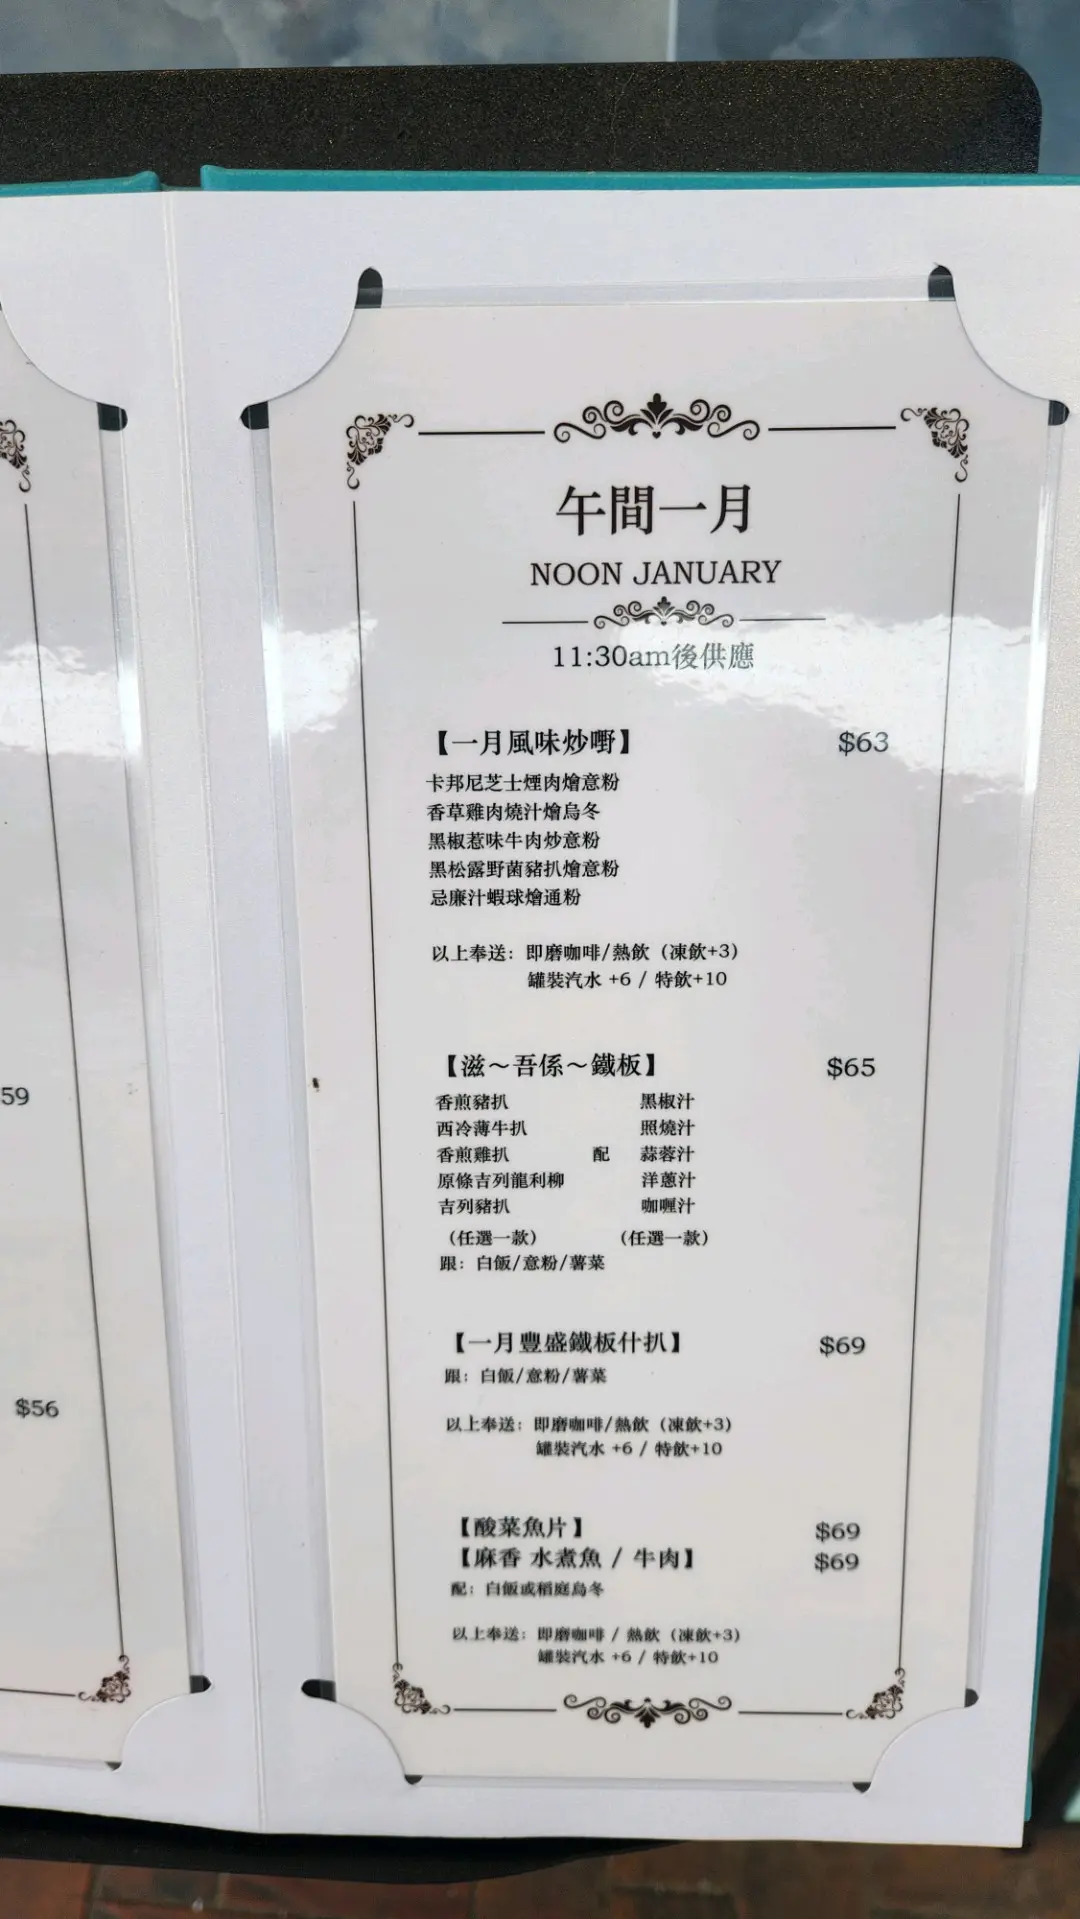 59
$56
午間一月
NOON JANUARY
11:30am後供應
【一月風味炒嘢】 $63
卡邦尼芝士煙肉燴意粉
香草雞肉燒汁燴烏冬
黑椒惹味牛肉炒意粉
黑松露野菌豬扒燴意粉
忌廉汁蝦球燴通粉
以上奉送：即磨咖啡/熱飲（凍飲+3）
罐裝汽水 +6 / 特飲+10
【滋～吾係～鐵板】 $65
香煎豬扒 黑椒汁
西冷薄牛扒 照燒汁
香煎雞扒 配 蒜蓉汁
原條吉列龍利柳 洋蔥汁
吉列豬扒 咖喱汁
（任選一款） （任選一款）
跟：白飯/意粉/薯菜
【一月豐盛鐵板什扒】 $69
跟：白飯/意粉/薯菜
以上奉送：即磨咖啡/熱飲（凍飲+3）
罐裝汽水 +6 / 特飲+10
【酸菜魚片】 $69
【麻香 水煮魚 / 牛肉】 $69
配：白飯或稻庭烏冬
以上奉送：即磨咖啡 / 熱飲（凍飲+3）
罐裝汽水 +6 / 特飲+10